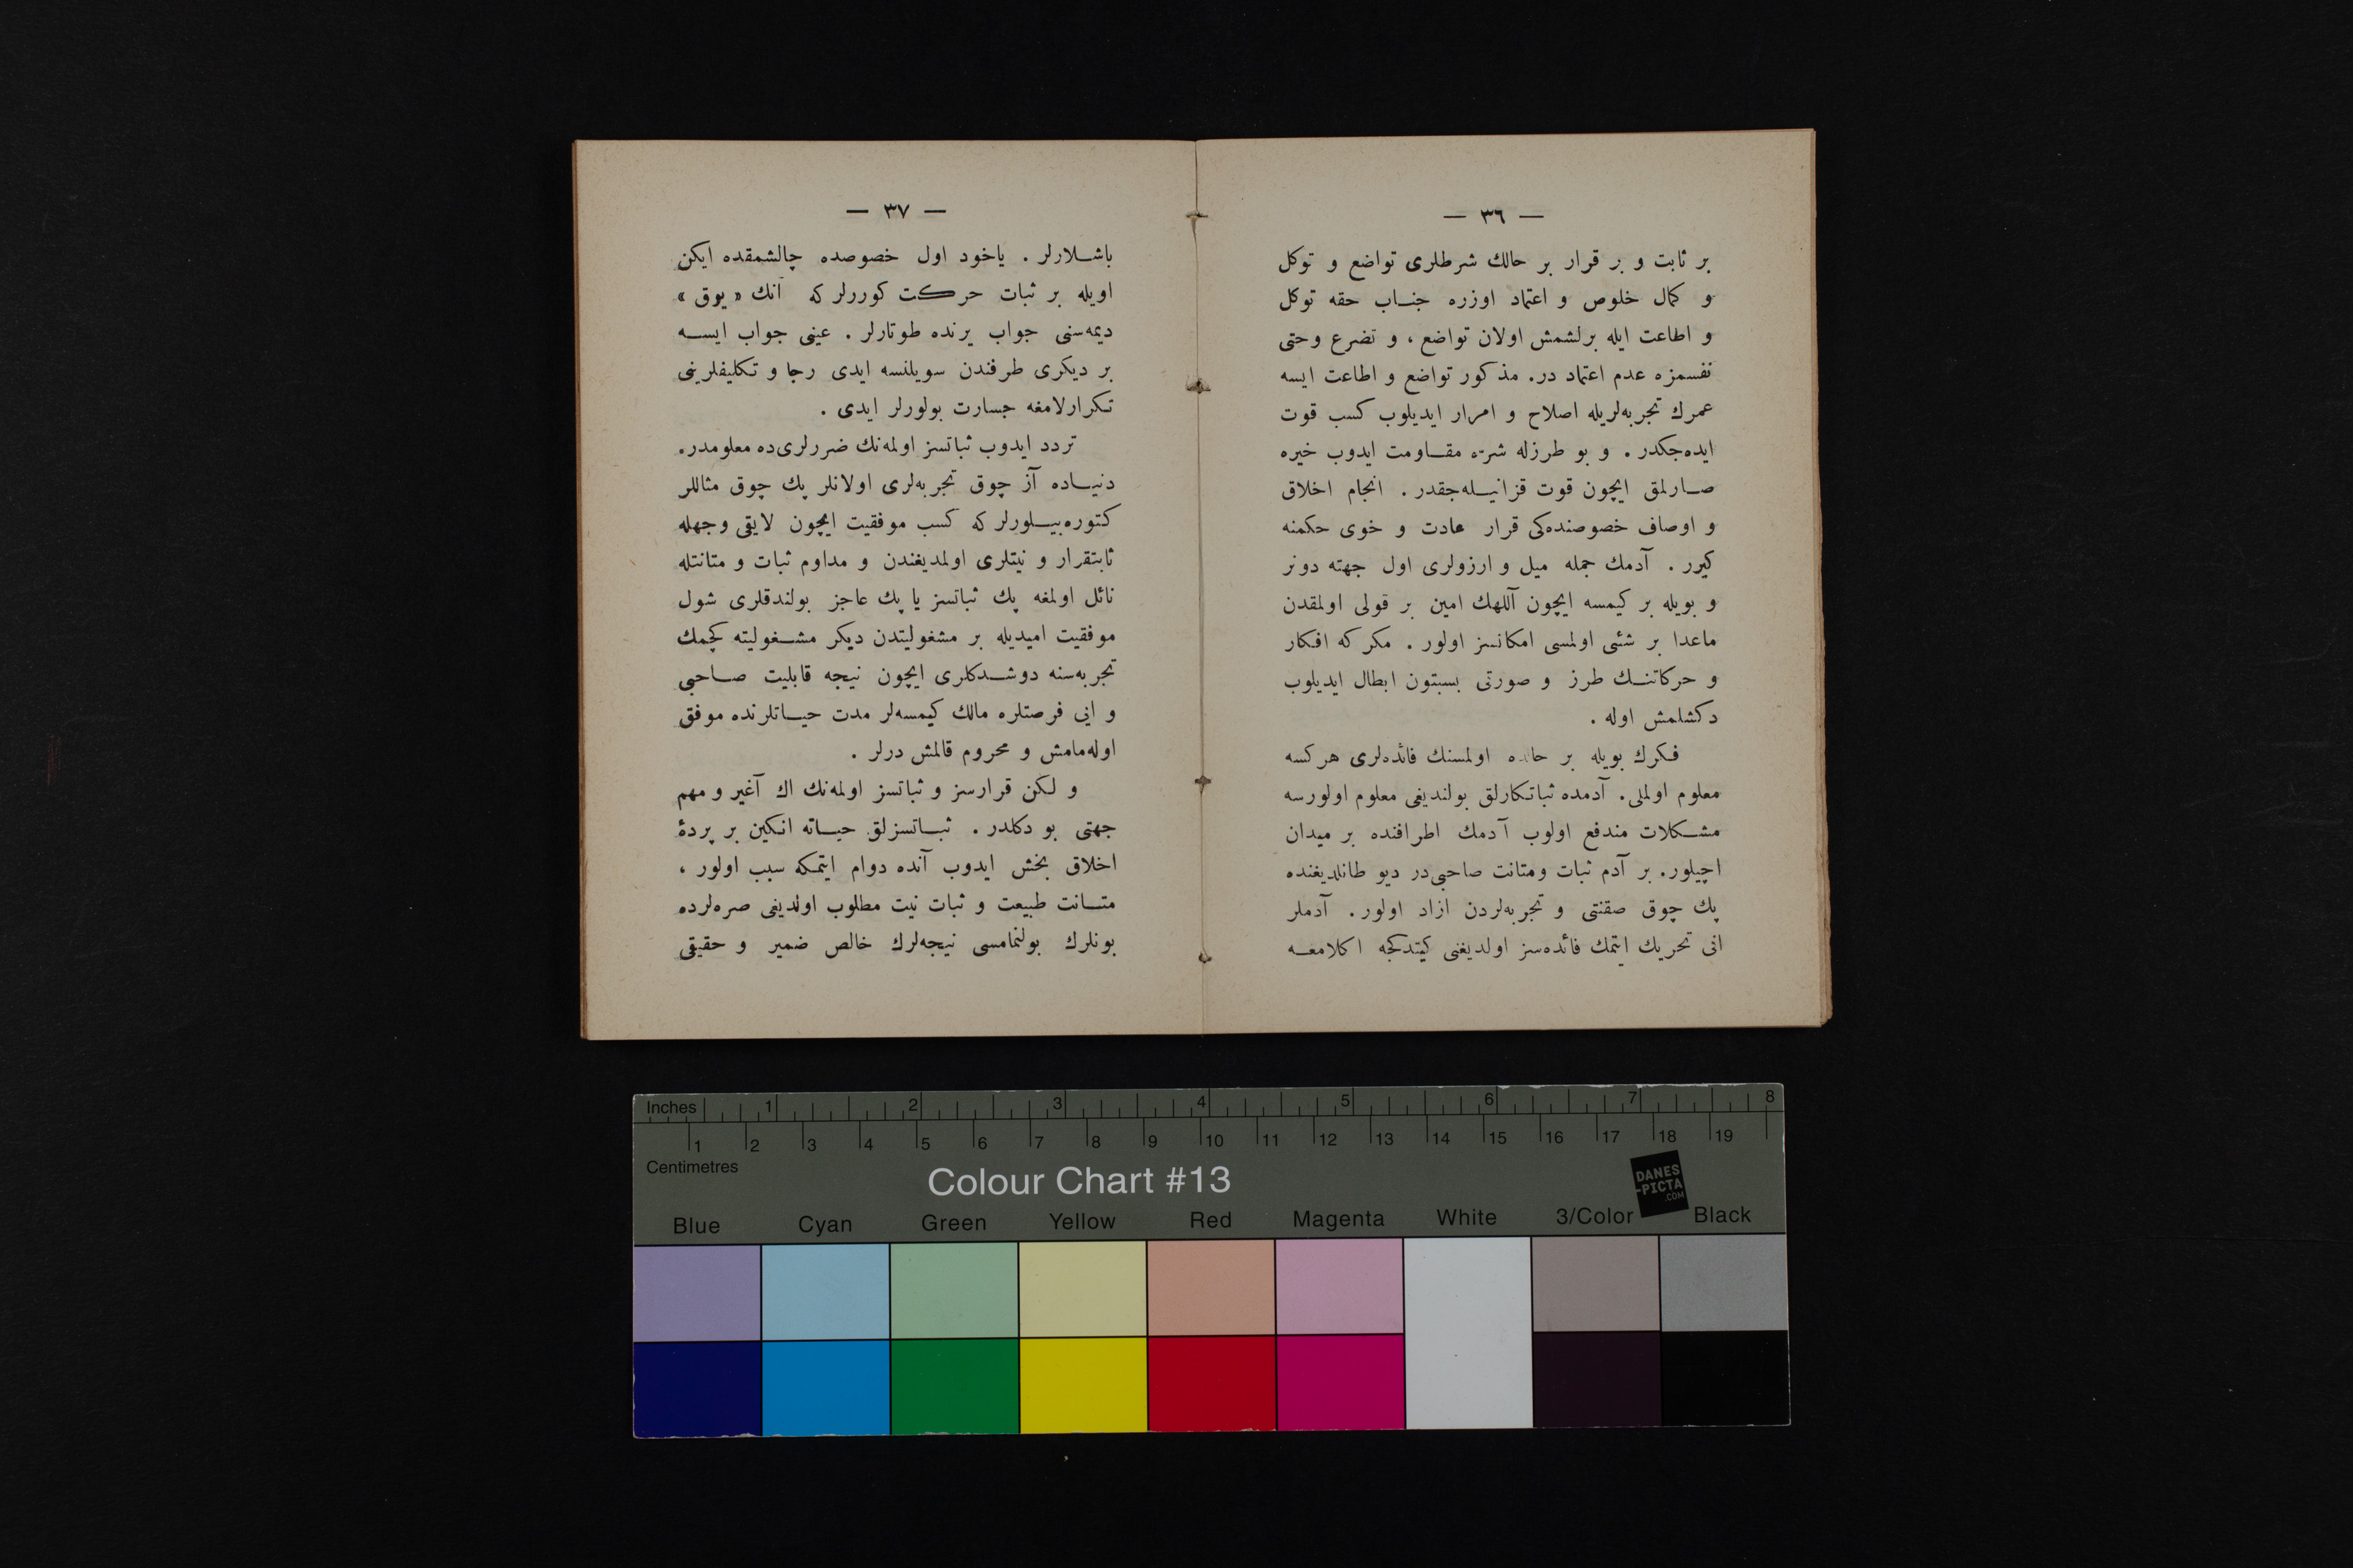 — ٣٦ —
بر ثابت و بر قرار بر حالك شرطلری تواضع و توكل
و كمال خلوص و اعتماد اوزره جناب حقه توكل
و اطاعت ایله برلشمش اولان تواضع ، و تضرع وحتی
نفسمزه عدم اعتماد در. مذكور تواضع و اطاعت ایسه
عمرك تجربه‌لریله اصلاح و امرار ایدیلوب كسب قوت
ایده‌جكدر . و بو طرزله شره مقاومت ایدوب خیره
صارلمق ایچون قوت قزانیله‌جقدر . انجام اخلاق
و اوصاف خصوصنده‌كی قرار عادت و خوی حكمنه
كیرر . آدمك جمله میل و ارزولری اول جهته دونر
و بویله بر كیمسه ایچون آللهك امین بر قولی اولمقدن
ماعدا بر شئی اولمسی امكانسز اولور . مكر كه افكار
و حركاتنك طرز و صورتی بسبتون ابطال ایدیلوب
دكشلمش اوله .
فكرك بویله بر حالده اولمسنك فائده‌لری هركسه
معلوم اولملی. آدمده ثباتكارلق بولندیغی معلوم اولورسه
مشكلات مندفع اولوب آدمك اطرافنده بر میدان
اچیلور. بر آدم ثبات ومتانت صاحبی‌در دیو طانلدیغنده
پك چوق صقنتی و تجربه‌لردن ازاد اولور. آدملر
انی تحریك ایتمك فائده‌سز اولدیغنی كیتدكجه اكلامغه
— ٣٧ —
باشلارلر . یاخود اول خصوصده چالشمقده ایكن
اویله بر ثبات حركت كوررلر كه آنك « یوق »
دیمه‌سنی جواب یرنده طوتارلر . عینی جواب ایسه
بر دیكری طرفندن سویلنسه ایدی رجا و تكلیفلرینی
تكرارلامغه جسارت بولورلر ایدی .
تردد ایدوب ثباتسز اولمه‌نك ضررلری‌ده معلومدر.
دنیاده آز چوق تجربه‌لری اولانلر پك چوق مثاللر
كتوره‌بیلورلر كه كسب موفقیت ایچون لایقی وجهله
ثابتقرار و نیتلری اولمدیغندن و مداوم ثبات و متانتله
نائل اولمغه پك ثباتسز یا پك عاجز بولندقلری شول
موفقیت امیدیله بر مشغولیتدن دیكر مشغولیته كچمك
تجربه‌سنه دوشدكلری ایچون نیجه قابلیت صاحبی
و ایی فرصتلره مالك كیمسه‌لر مدت حیاتلرنده موفق
اوله‌مامش و محروم قالمش درلر .
و لكن قرارسز و ثباتسز اولمه‌نك اك آغیر و مهم
جهتی بو دكلدر . ثباتسزلق حیاته انكین بر پردهٔ
اخلاق بخش ایدوب آنده دوام ایتمكه سبب اولور ،
متانت طبیعت و ثبات نیت مطلوب اولدیغی صره‌لرده
بونلرك بولنمامسی نیجه‌لرك خالص ضمیر و حقیقی
Inches 1 2 3 4 5 6 7 8
1 2 3 4 5 6 7 8 9 10 11 12 13 14 15 16 17 18 19
Centimetres
Colour Chart #13
DANES
-PICTA
.COM
Blue Cyan Green Yellow Red Magenta White 3/Color Black